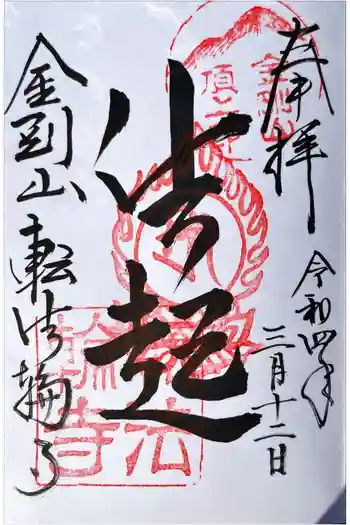 奉拝
令和四年
三月十二日
法起
金剛山 転法輪寺
金剛山
転法
輪寺